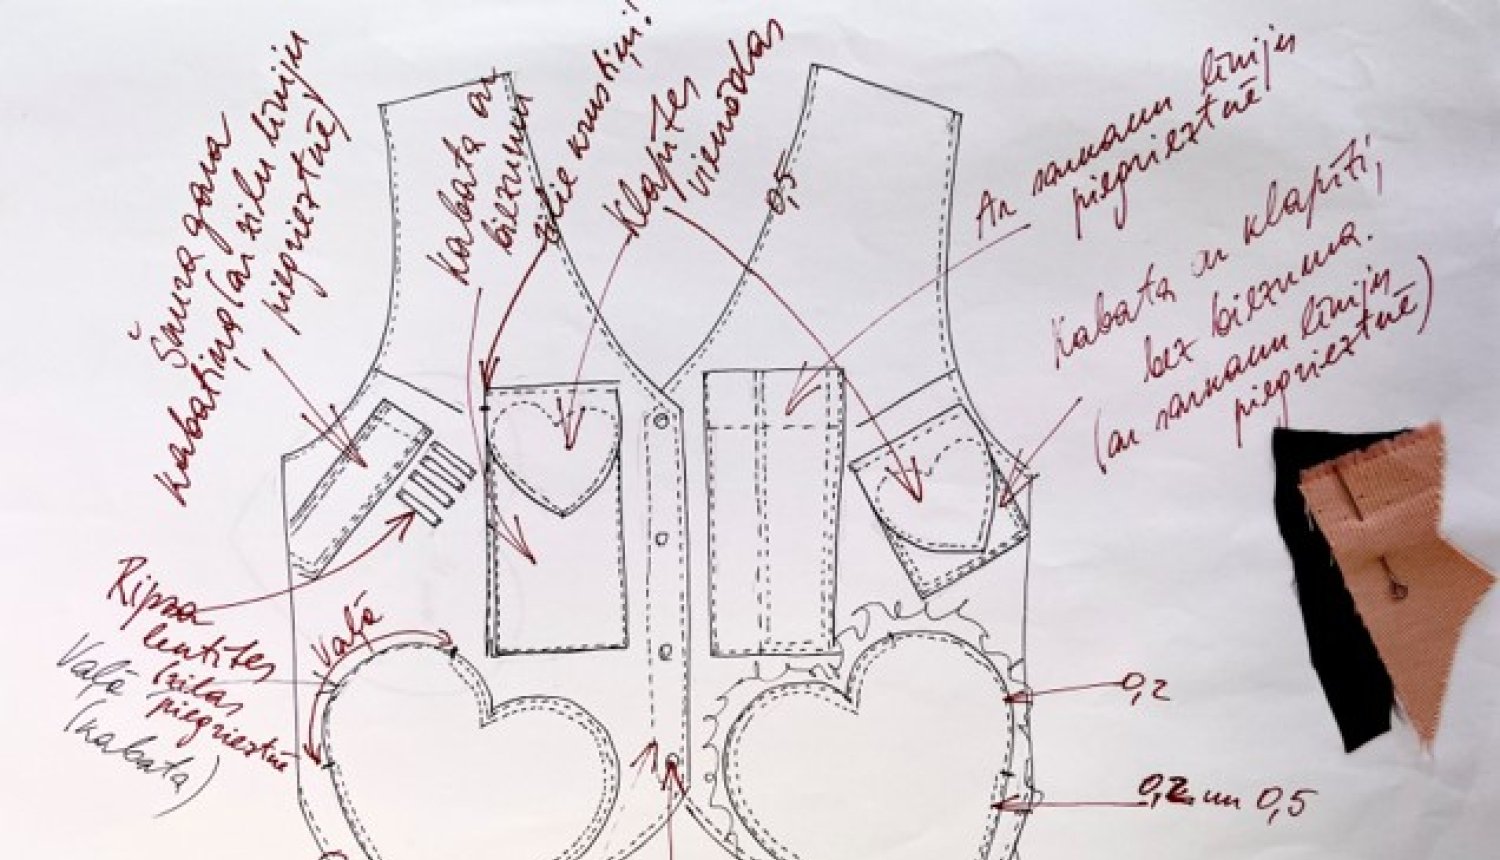 Šaura gara
kabatiņa (ar zilu līniju
piegrieztnē)
Kabata ar
biezumu
Klapītes
vienādas
0,5
Ar sarkanu līniju
piegrieztnē
Kabata ar klapīti,
bez biezuma.
(ar sarkanu līniju
piegrieztnē)
Ripsa
lentītes
(zilas
piegrieztnē
Vaļā
Vaļā
(kabata)
0,2
0,2 un 0,5